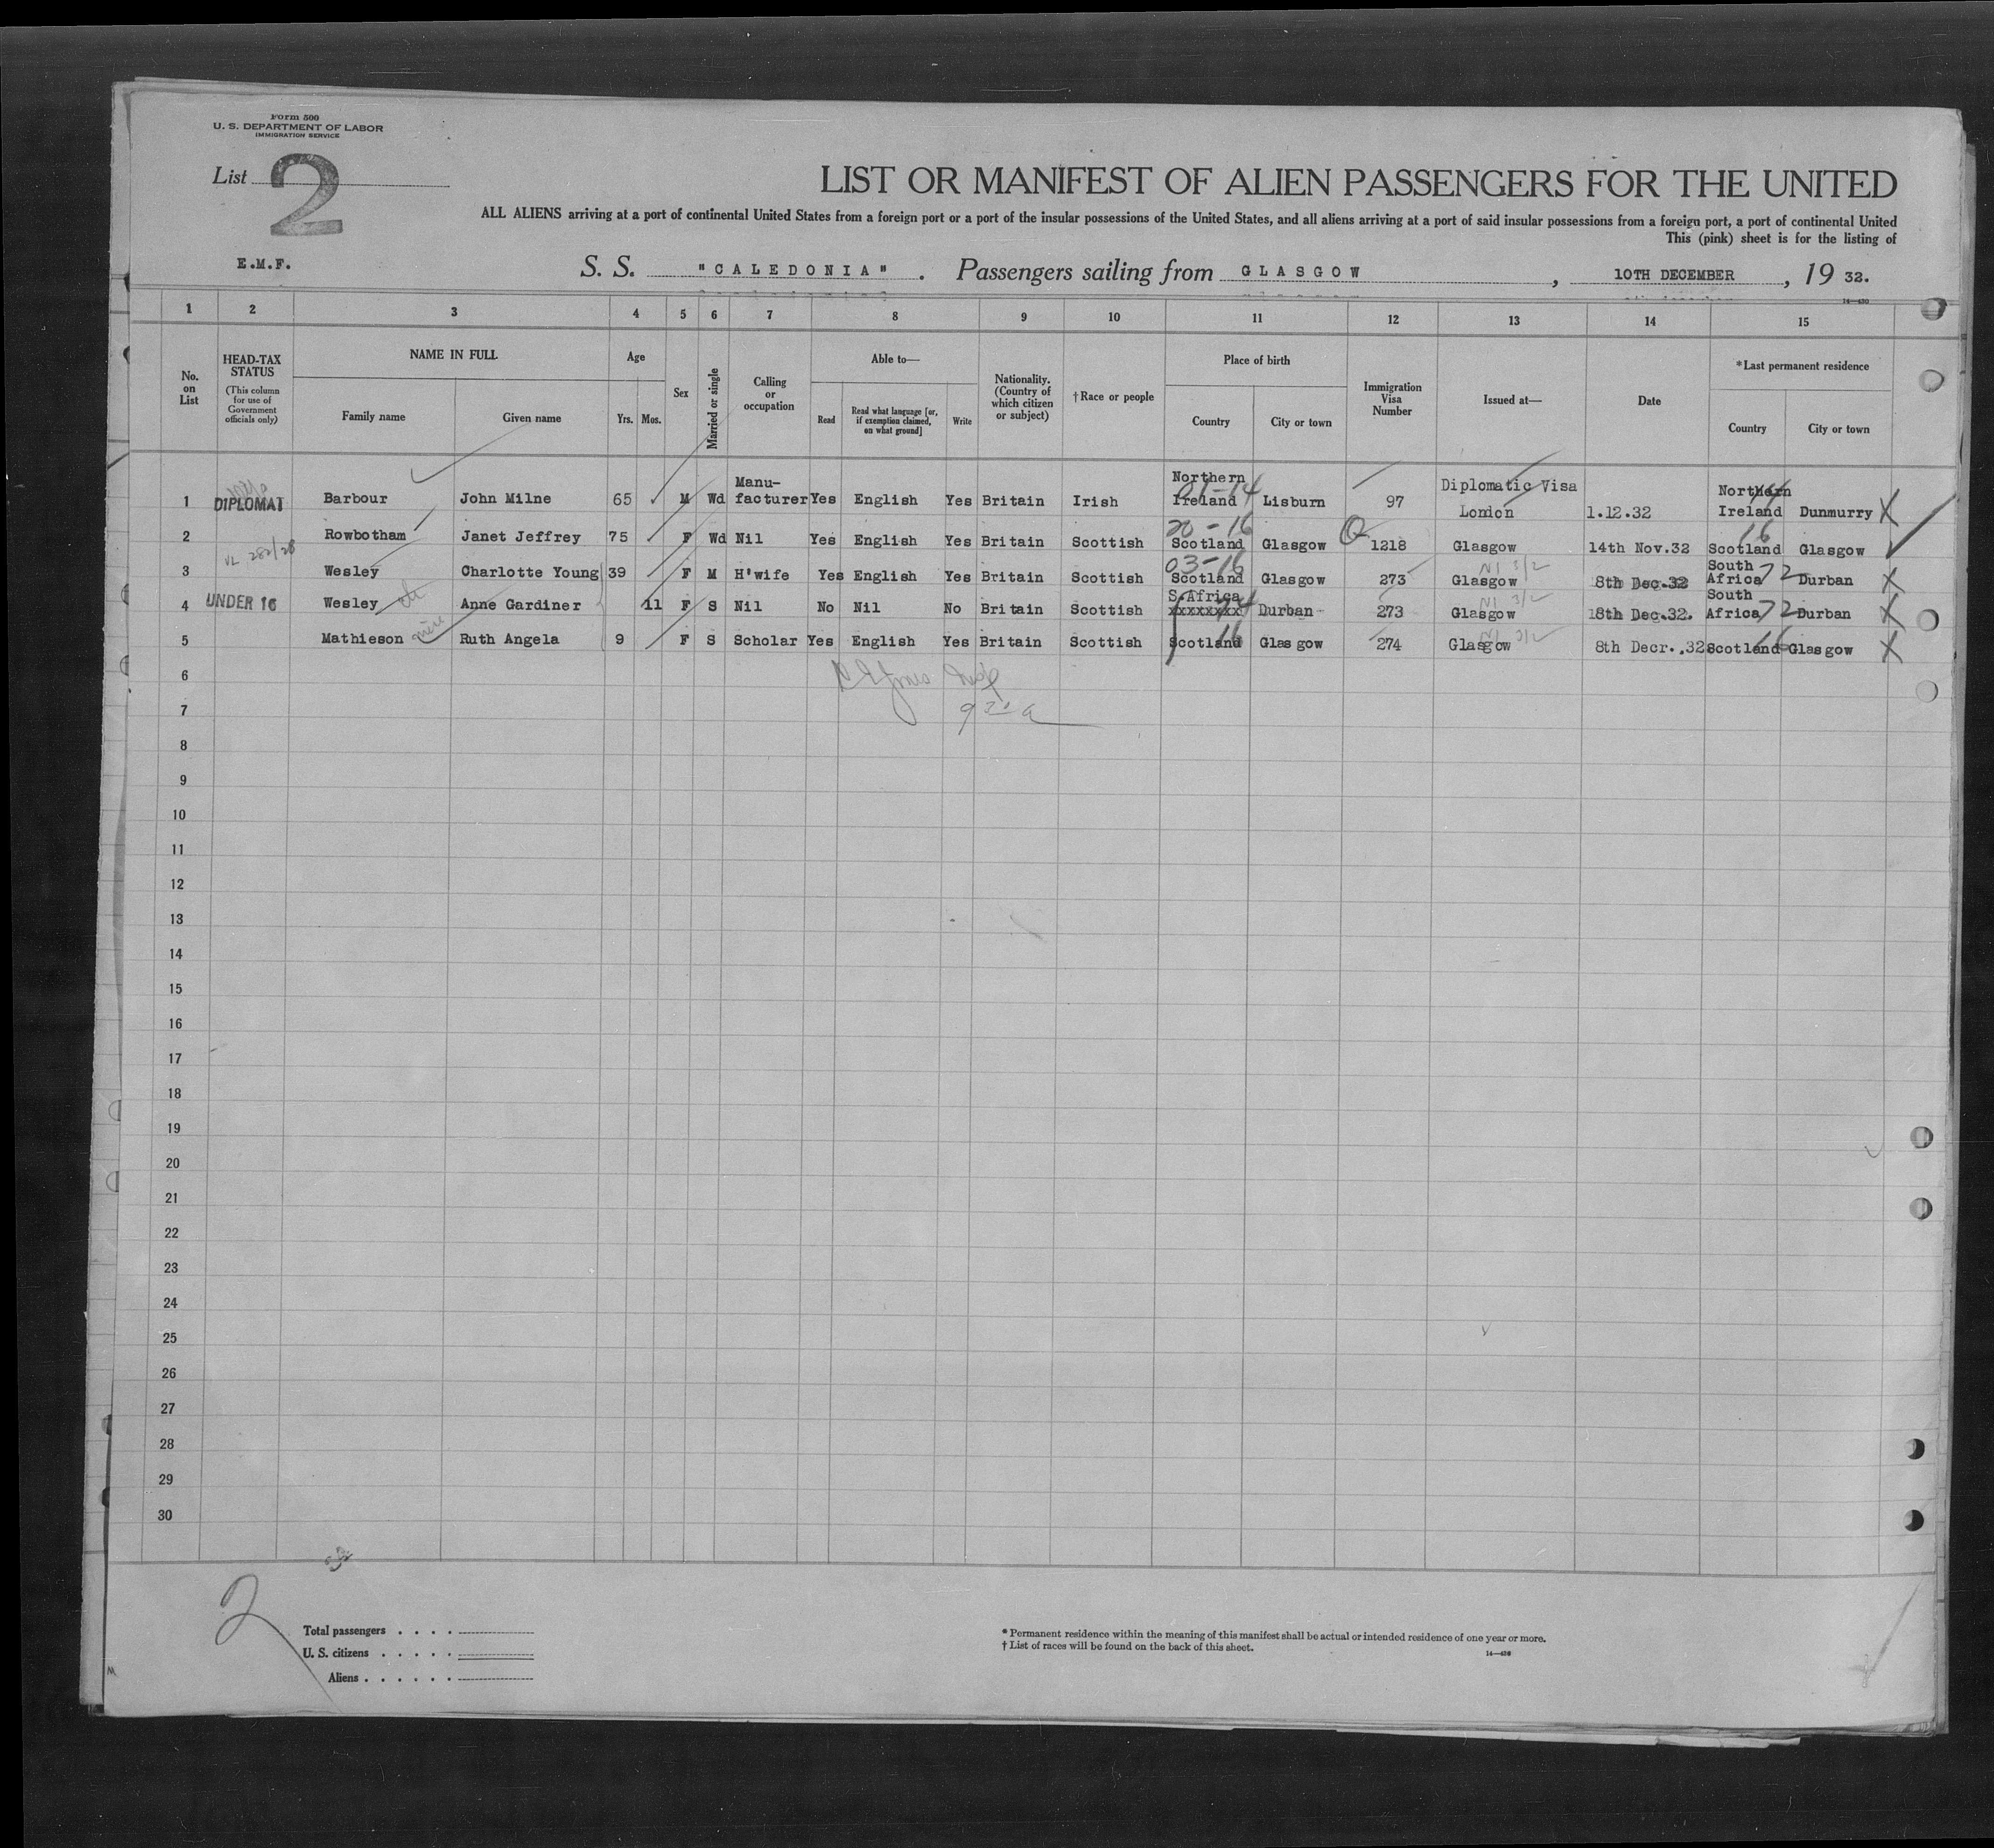 Form 500
U. S. DEPARTMENT OF LABOR
IMMIGRATION SERVICE
List 2
LIST OR MANIFEST OF ALIEN PASSENGERS FOR THE UNITED
ALL ALIENS arriving at a port of continental United States from a foreign port or a port of the insular possessions of the United States, and all aliens arriving at a port of said insular possessions from a foreign port, a port of continental United
This (pink) sheet is for the listing of
E.M.F. S. S. "CALEDONIA". Passengers sailing from GLASGOW, 10TH DECEMBER, 19 32.
14—430
1 2 3 4 5 6 7 8 9 10 11 12 13 14 15
No. on List
HEAD-TAX STATUS
(This column for use of Government officials only)
NAME IN FULL
Family name Given name
Age
Yrs. Mos.
Sex
Married or single
Calling or occupation
Able to—
Read
Read what language [or, if exemption claimed, on what ground]
Write
Nationality. (Country of which citizen or subject)
†Race or people
Place of birth
Country City or town
Immigration Visa Number
Issued at—
Date
*Last permanent residence
Country City or town
1 DIPLOMAT Barbour John Milne 65 M Wd Manu-facturer Yes English Yes Britain Irish Northern Ireland 01-14 Lisburn 97 Diplomatic Visa London 1.12.32 Northern Ireland 14 Dunmurry X
2 Rowbotham Janet Jeffrey 75 F Wd Nil Yes English Yes Britain Scottish Scotland 20-16 Glasgow 1218 Glasgow 14th Nov.32 Scotland 16 Glasgow
3 VL 282/28 Wesley Charlotte Young 39 F M H'wife Yes English Yes Britain Scottish Scotland 03-16 Glasgow 273 Glasgow N1 3/2 8th Dec.32 South Africa 72 Durban X
4 UNDER 16 Wesley Anne Gardiner 11 F S Nil No Nil No Britain Scottish S.Africa xxxxxxxx Durban 273 Glasgow N1 3/2 8th Dec.32. South Africa 72 Durban X
5 Mathieson niece Ruth Angela 9 F S Scholar Yes English Yes Britain Scottish Scotland 16 Glasgow 274 Glasgow N1 3/2 8th Decr.,32 Scotland 16 Glasgow X
6
7
8
9
10
11
12
13
14
15
16
17
18
19
20
21
22
23
24
25
26
27
28
29
30
2
Total passengers . . . .
U. S. citizens . . . . .
Aliens . . . . . .
* Permanent residence within the meaning of this manifest shall be actual or intended residence of one year or more.
† List of races will be found on the back of this sheet.
14—430